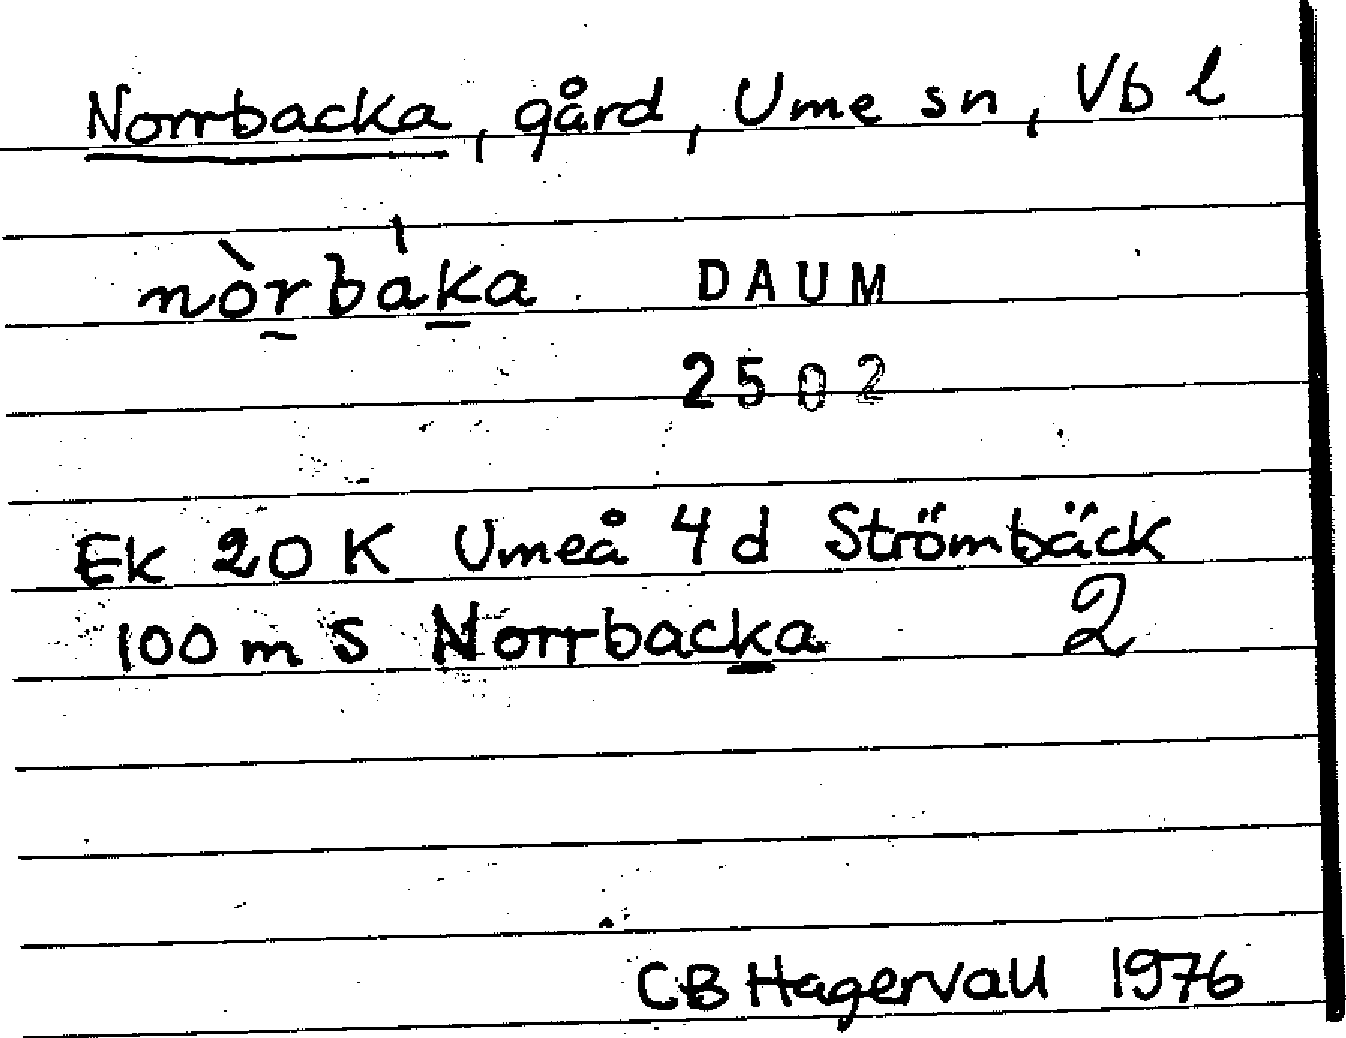 Norrbacka, gård, Ume sn, Vb l
nòrbàka DAUM
2502
Ek 20 K Umeå 4 d Strömbäck
100 m S Norrbacka 2
CB Hagervall 1976